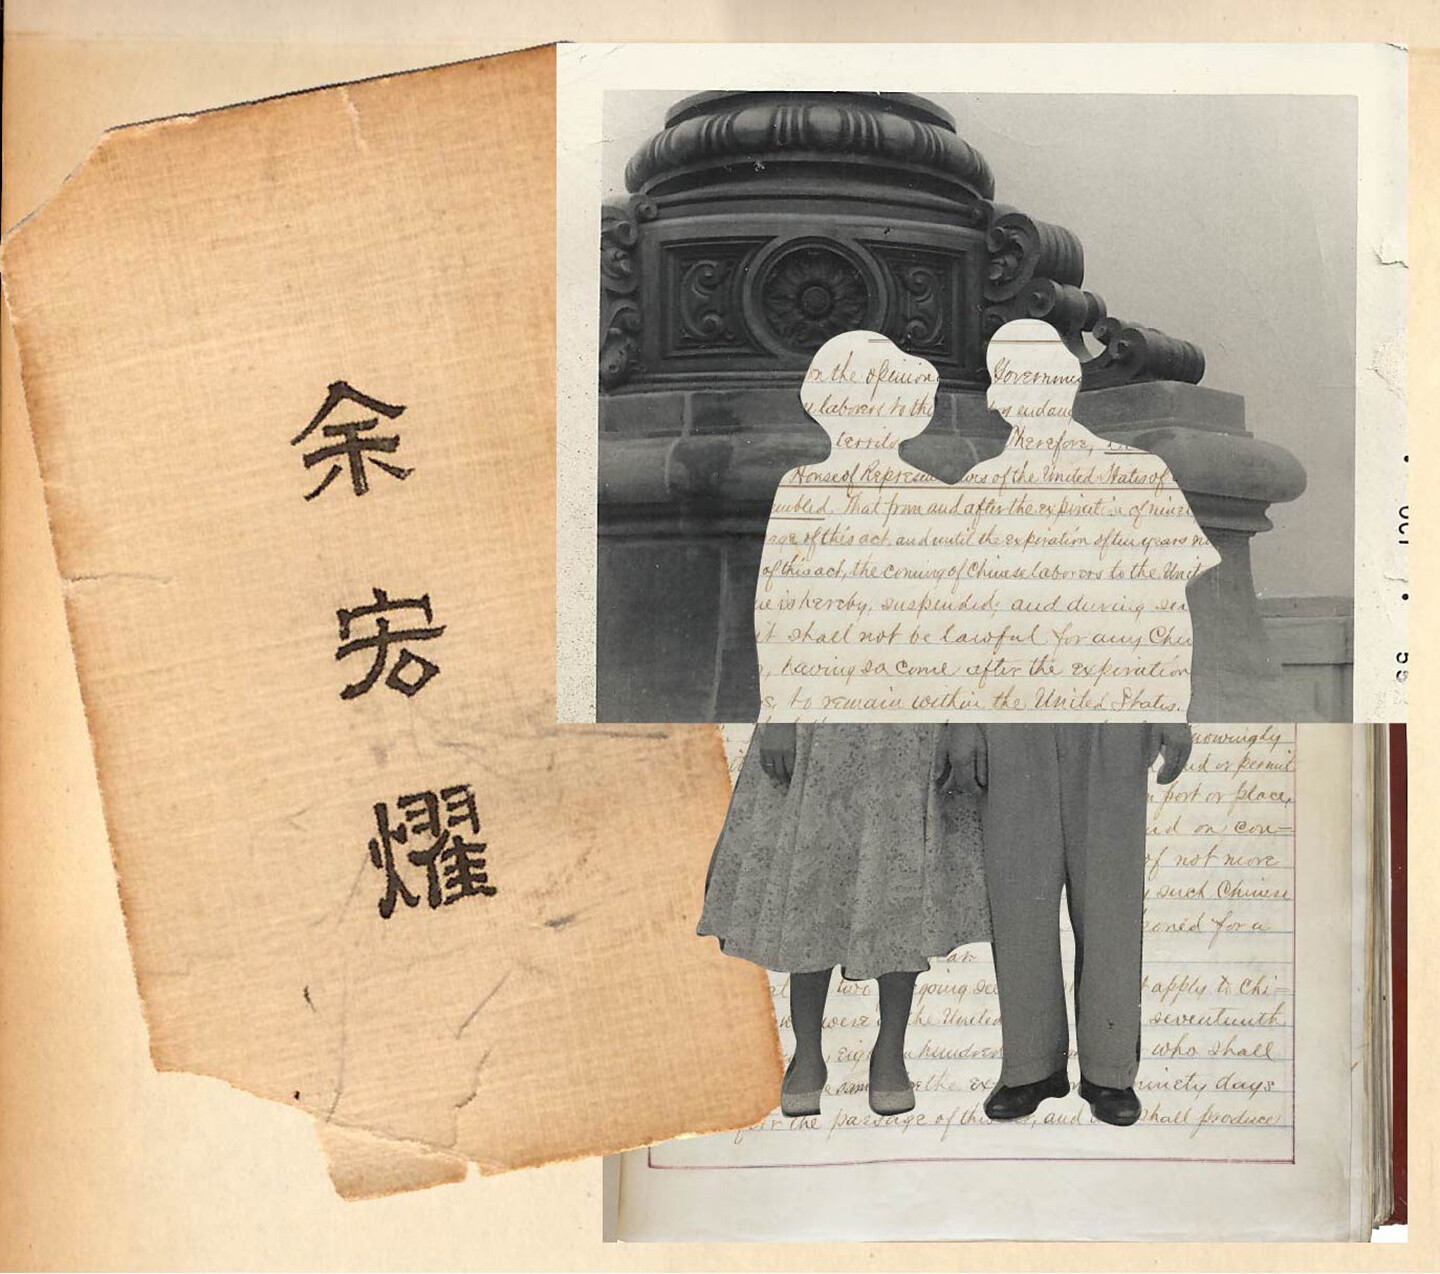 余
宏
耀
OCT • 55
on the opinion Governme
laborers to the endang
territo Therefore,
House of Represe ives of the United States of
embled, That from and after the expiration of nine
age of this act, and until the expiration of ten years ne
of this act, the coming of Chinese laborers to the Unit
is hereby, suspended; and during
it shall not be lawful for any Chi
having so come after the expiration
to remain within the United States.
nowingly
or permit
port or place,
on con=
of not more
such Chinese
oned for a
two going sec apply to Chi=
were the United seventeenth
hundred who shall
same the ex ninety days
the passage of this and shall produce